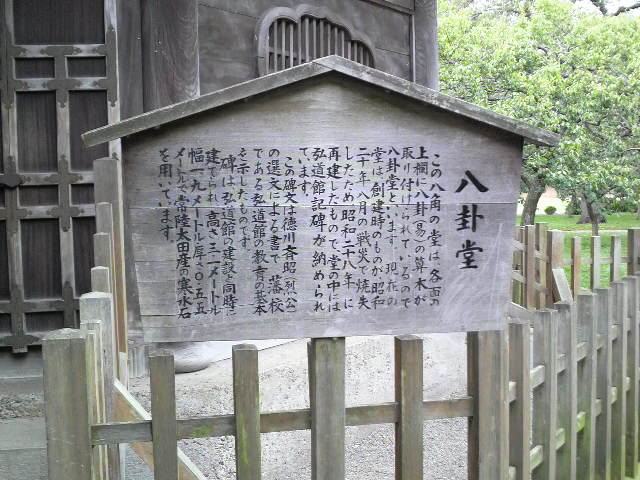 八卦堂
この八角の堂は、各面の
上欄に八卦(易の算木)が
取り付けられているので
八卦堂といいます。現在の
堂は創建時のものが昭和
二十年八月の戦災で焼失
したため昭和二十八年に
再建したもので堂の中には
弘道館記碑が納められ
ています。
この碑文は徳川斉昭(烈公)
の選文による書で、藩校
である弘道館の教育の基本
を示したものです。
碑は、弘道館の建設と同時に
建てられ、高さ三・一メートル
幅一・九メートル厚さ〇・五五
メートルで常陸太田産の寒水石
を用いています。